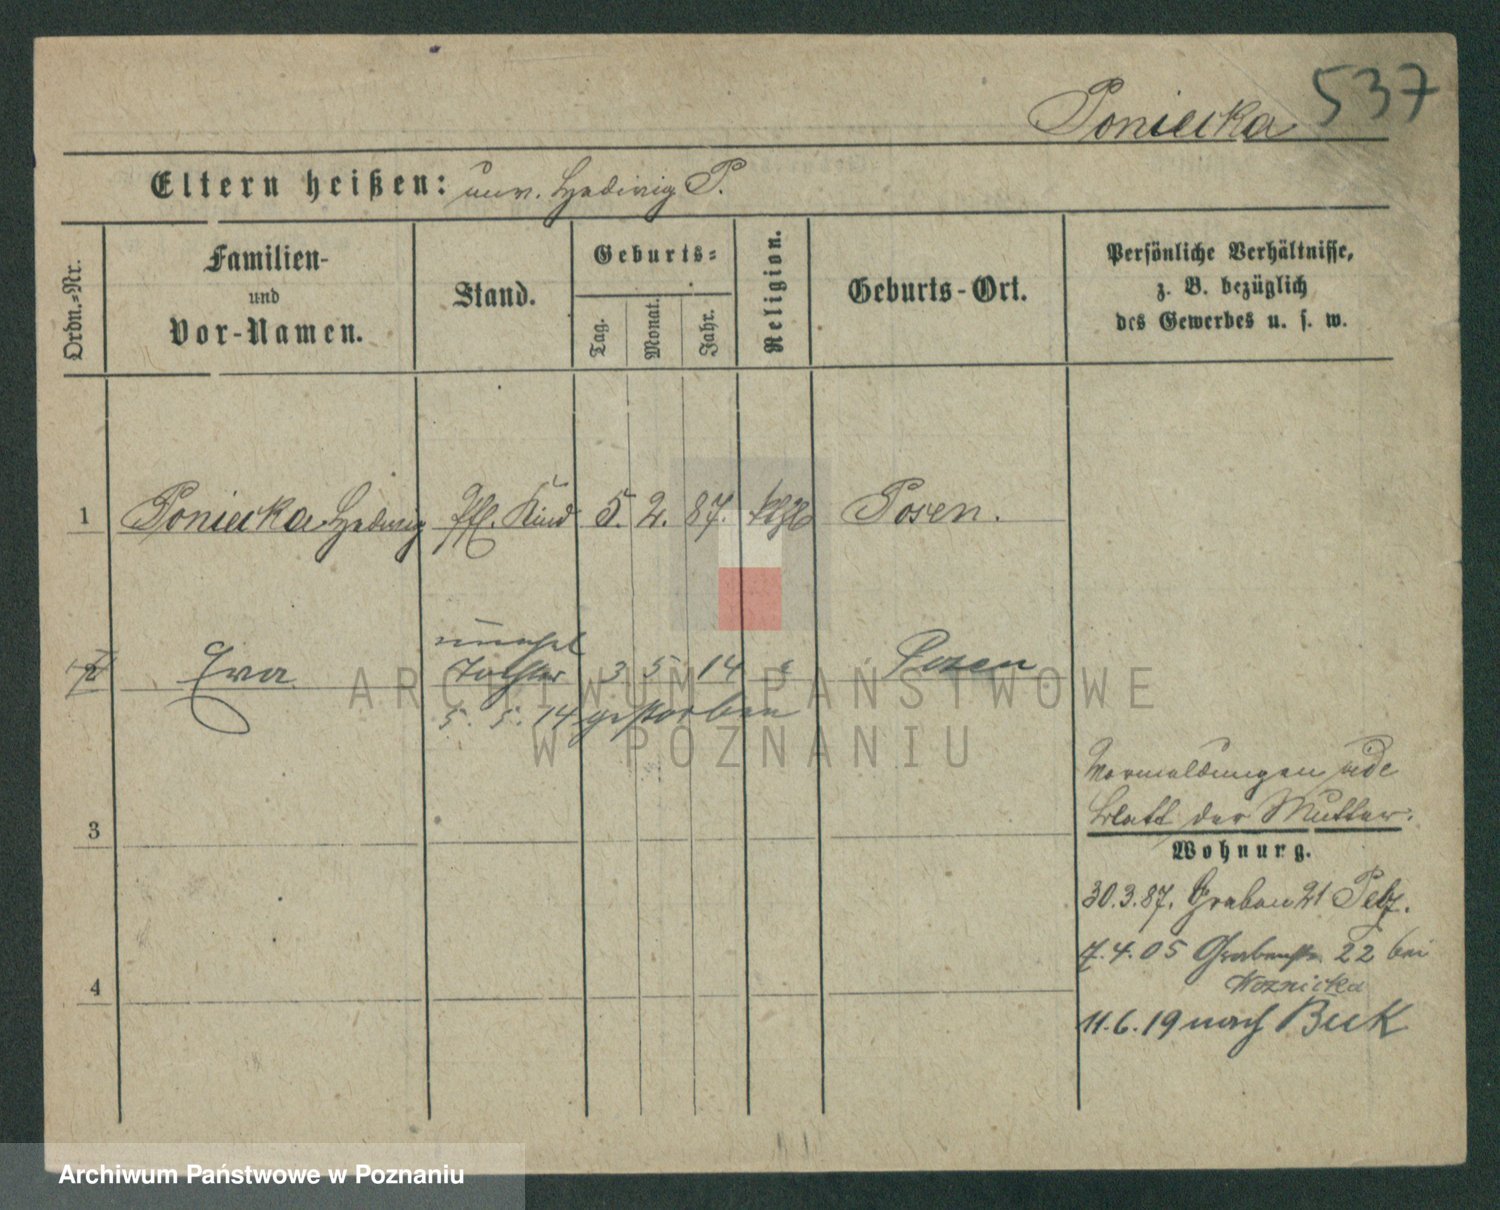 537
Poniecka
Eltern heißen: unv. Hedwig P.
Ordn.-Nr.
Familien-
und
Vor-Namen.
Stand.
Geburts-
Tag.
Monat.
Jahr.
Religion.
Geburts-Ort.
Persönliche Verhältnisse,
z. B. bezüglich
des Gewerbes u. s. w.
1 Poniecka Hedwig Pfl. Kind 5. 2. 87. kath Posen.
unehel
2 Eva Tochter 3 5 14 " Posen
5. 5. 14 gestorben
ARCHIWUM PAŃSTWOWE
W POZNANIU
3
4
Vermeldungen side
Blatt der Mutter.
Wohnung.
30.3.87. Graben 21 Pelz.
7.4.05 Grabenstr. 22 bei
Woznicka
11.6.19 nach Buk
Archiwum Państwowe w Poznaniu